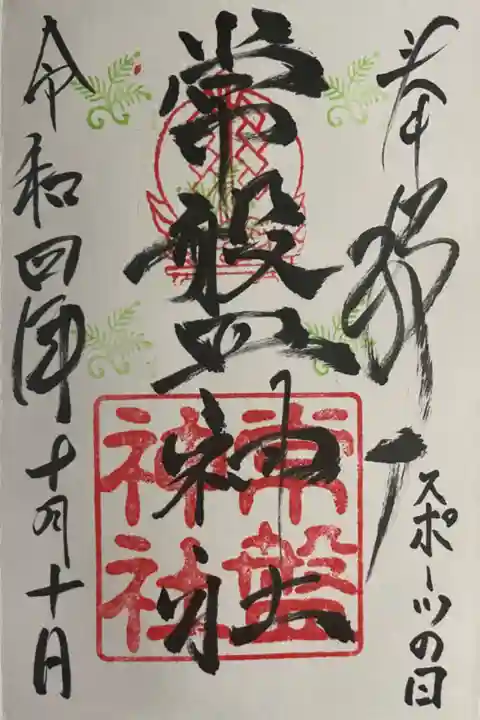 奉拝
スポーツの日
常盤神社
常盤
神社
令和四年十月十日